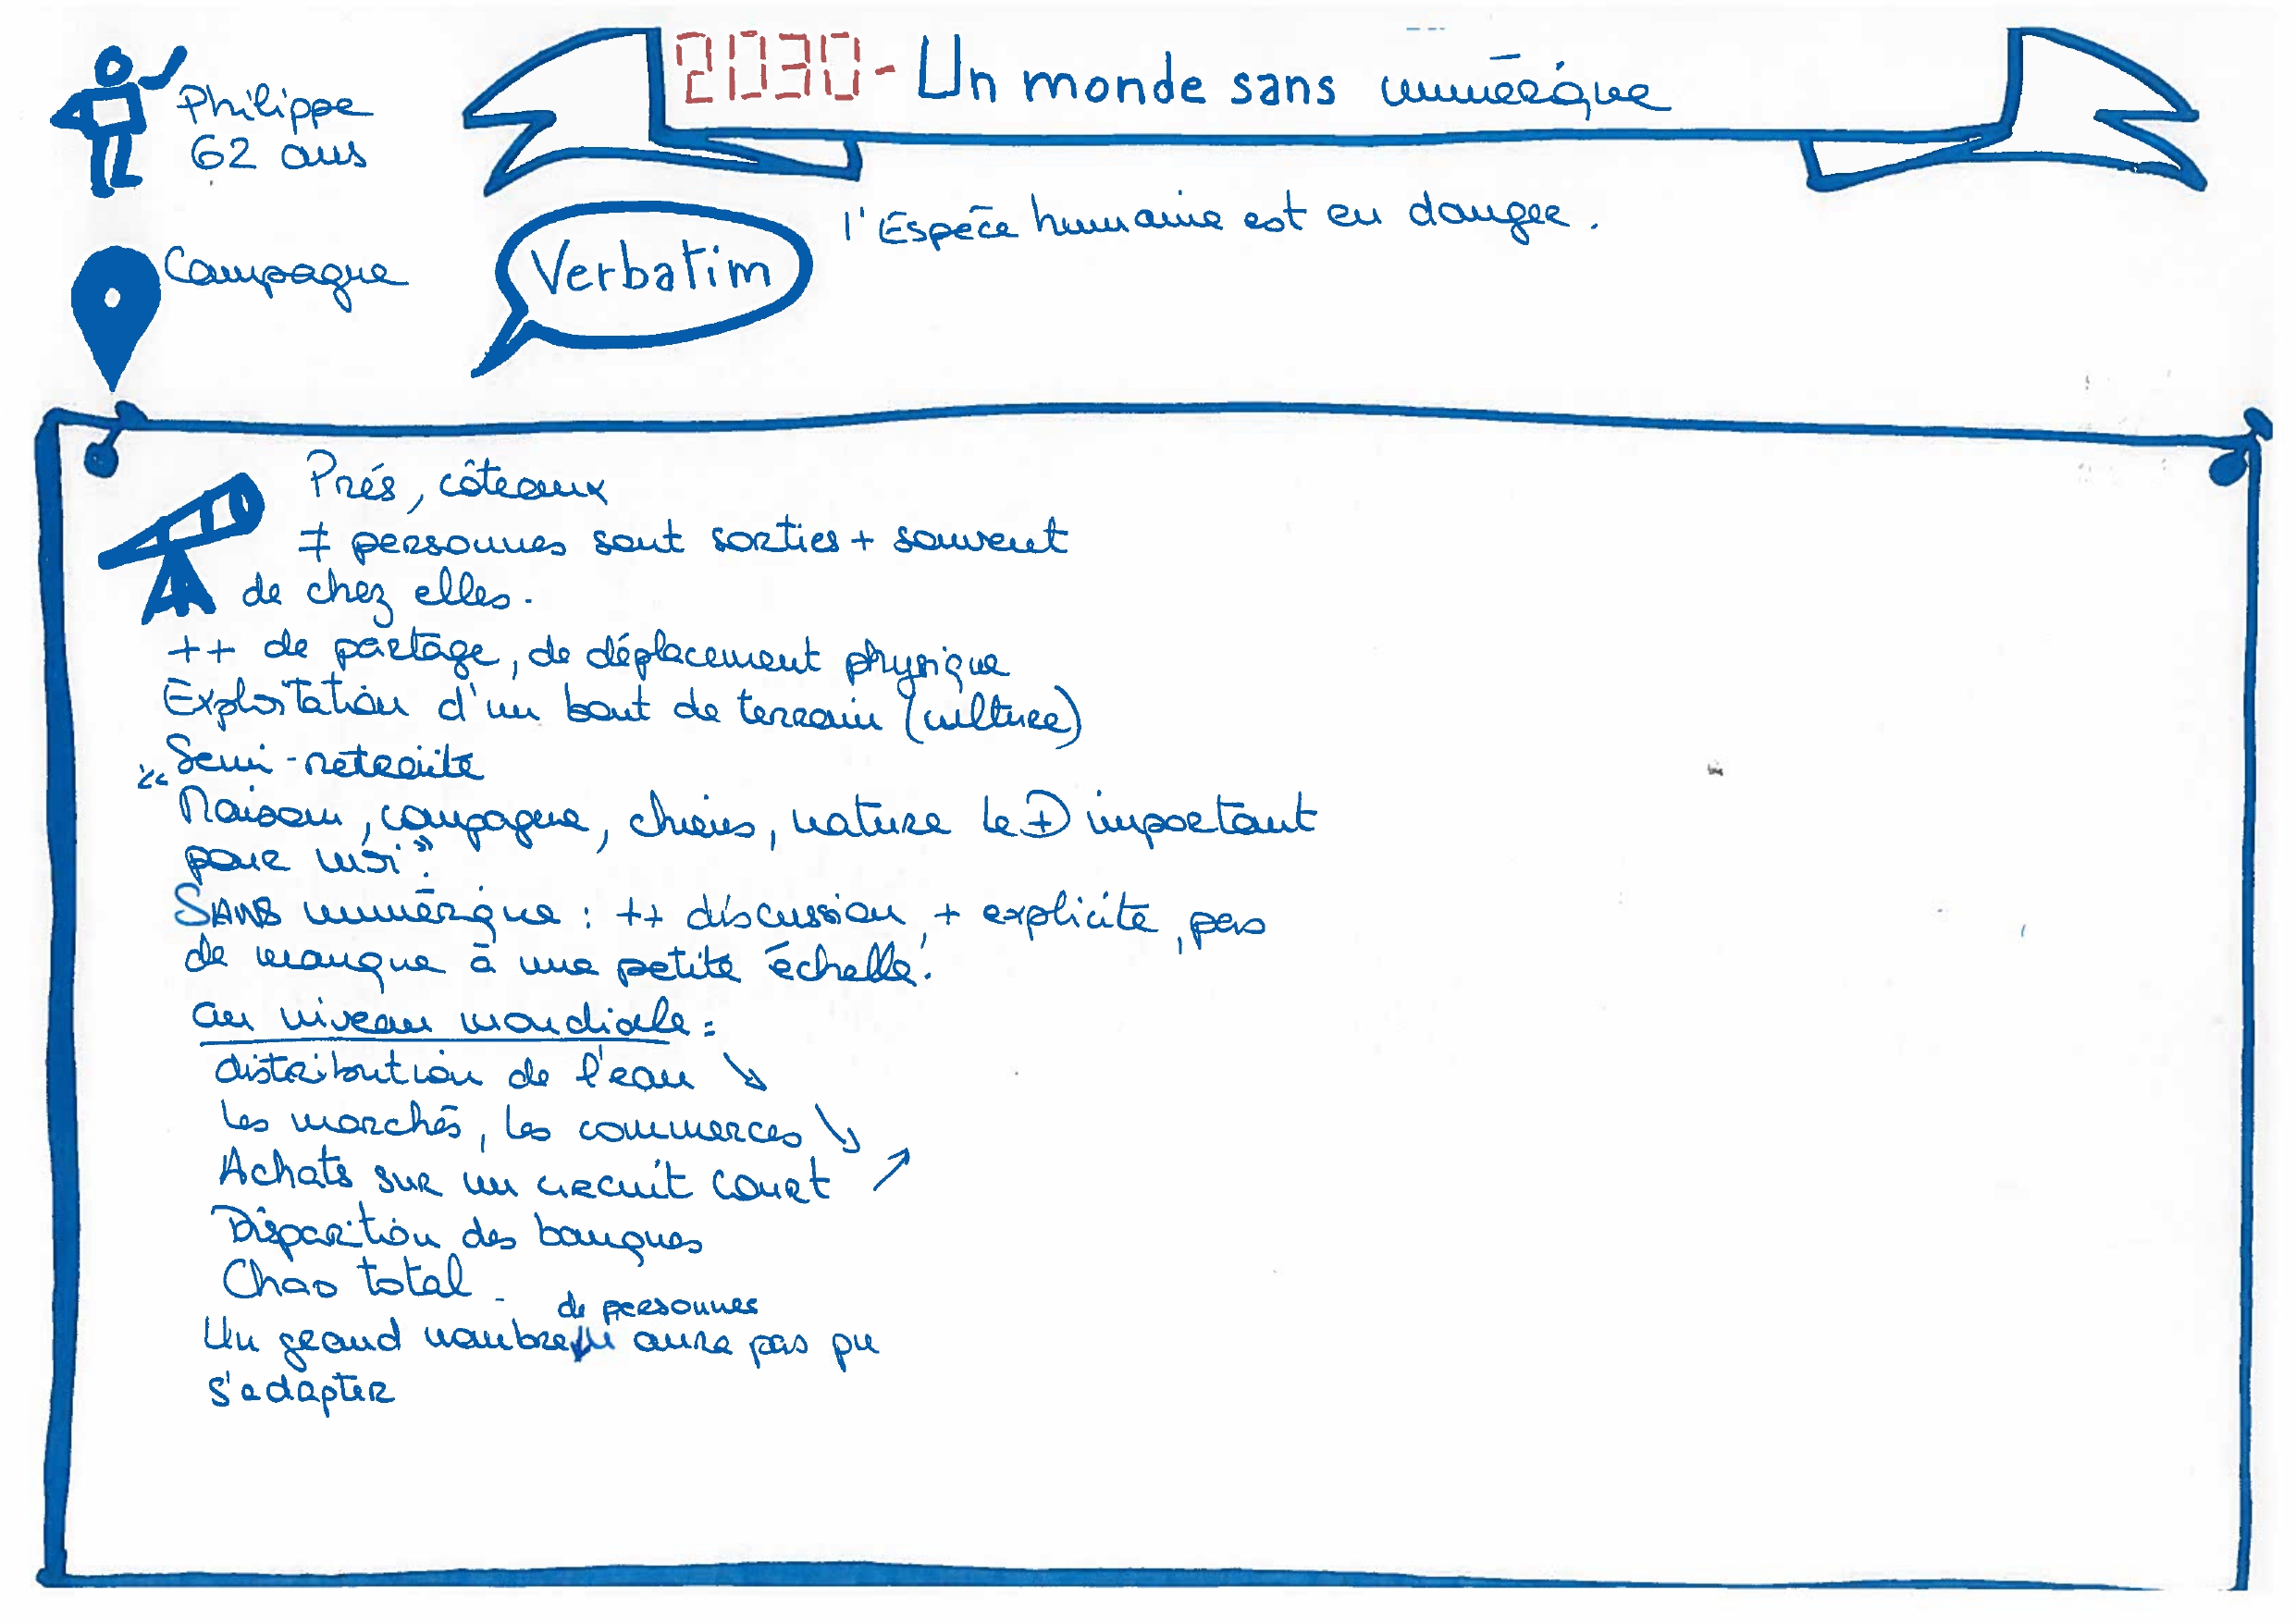 Philippe
62 ans
2030 - Un monde sans numérique
Campagne
Verbatim
l'Espèce humaine est en danger.
Prés, côteaux
≠ personnes sont sorties + souvent
de chez elles.
++ de partage, de déplacement physique
Exploitation d'un bout de terrain (culture)
Semi-retraite
"Maison, campagne, chiens, nature le + important
pour moi".
SANS numérique : ++ discussion, + explicite, pas
de manque à une petite échelle.
au niveau mondiale :
distribution de l'eau ↘
les marchés, les commerces ↘
Achats sur un circuit court ↗
Disparition des banques
Chao total.
de personnes
Un grand nombre aura pas pu
s'adapter